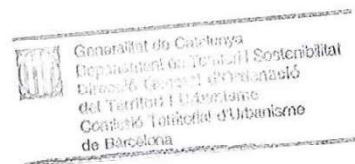 Generalitat de Catalunya
Departament de Territori i Sostenibilitat
Direcció General d'Ordenació
del Territori i Urbanisme
Comissió Territorial d'Urbanisme
de Barcelona